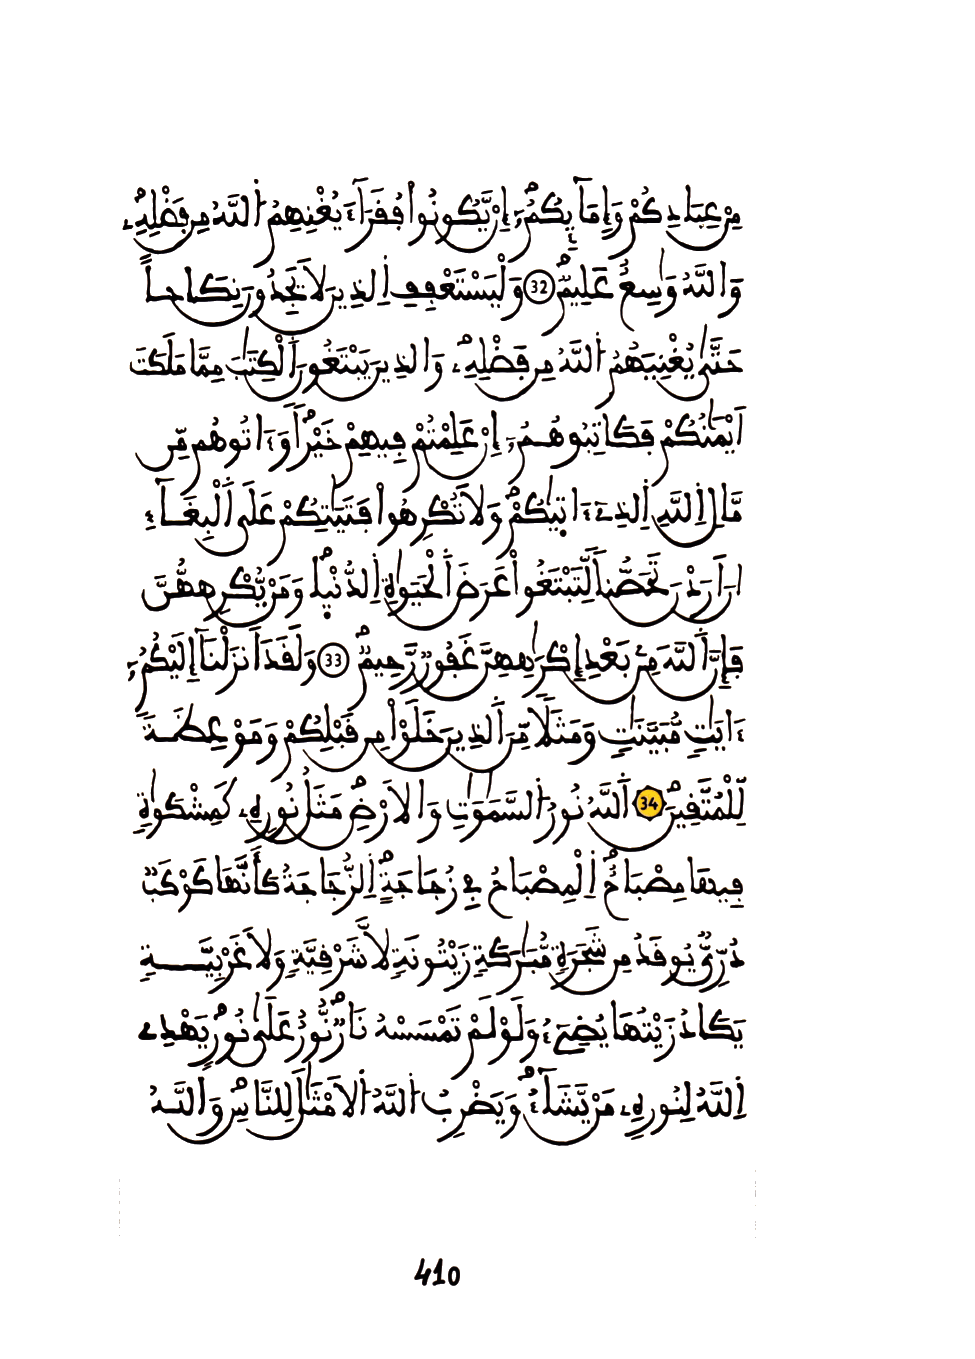 مِنْ عِبَادِكُمْ وَإِمَآئِكُمُۥٓ إِنْ يَّكُونُواْ فُقَرَآءَ يُغْنِهِمُ اُللَّهُ مِن فَضْلِهِۦ
وَاللَّهُ وَٰسِعٌ عَلِيمٌ 32 وَلْيَسْتَعْفِفِ اِلذِينَ لَا يَجِدُونَ نِكَاحاً
حَتَّىٰ يُغْنِيَهُمُ اُللَّهُ مِن فَضْلِهِۦ وَالذِينَ يَبْتَغُونَ اَلْكِتَٰبَ مِمَّا مَلَكَتَ
اَيْمَٰنُكُمْ فَكَاتِبُوهُمُۥٓ إِنْ عَلِمْتُمْ فِيهِمْ خَيْراً وَءَاتُوهُم مِّن
مَّالِ اِللَّهِ اِلذِےٓ ءَاتِيٰكُمْ وَلَا تُكْرِهُواْ فَتَيَٰتِكُمْ عَلَى اَلْبِغَآءِ
انَ اَرَدْنَ تَحَصُّناً لِّتَبْتَغُواْ عَرَضَ اَلْحَيَوٰةِ اِلدُّنْيٰا وَمَنْ يُّكْرِههُّنَّ
فَإِنَّ اَللَّهَ مِنۢ بَعْدِ إِكْرَٰهِهِنَّ غَفُورٌ رَّحِيمٌ 33 وَلَقَدَ اَنزَلْنَآ إِلَيْكُمُۥٓ
ءَايَٰتٍ مُّبَيَّنَٰتٍ وَمَثَلاً مِّنَ اَلذِينَ خَلَوْاْ مِن قَبْلِكُمْ وَمَوْعِظَةً
لِّلْمُتَّقِينَ 34 اَللَّهُ نُورُ اُلسَّمَٰوَٰتِ وَالَارْضِ مَثَلُ نُورِهِۦ كَمِشْكَوٰةٍ
فِيهَا مِصْبَاحٌ اِلْمِصْبَاحُ فِے زُجَاجَةٍ اِلزُّجَاجَةُ كَأَنَّهَا كَوْكَبٌ
دُرِّيٌّ يُوقَدُ مِن شَجَرَةٍ مُّبَٰرَكَةٍ زَيْتُونَةٍ لَّا شَرْقِيَّةٍ وَلَا غَرْبِيَّةٍ
يَكَادُ زَيْتُهَا يُضِےٓءُ وَلَوْ لَمْ تَمْسَسْهُ نَارٌ نُّورٌ عَلَىٰ نُورٍ يَهْدِے
اِللَّهُ لِنُورِهِۦ مَنْ يَّشَآءُ وَيَضْرِبُ اُللَّهُ اُلَامْثَٰلَ لِلنَّاسِ وَاللَّهُ
410